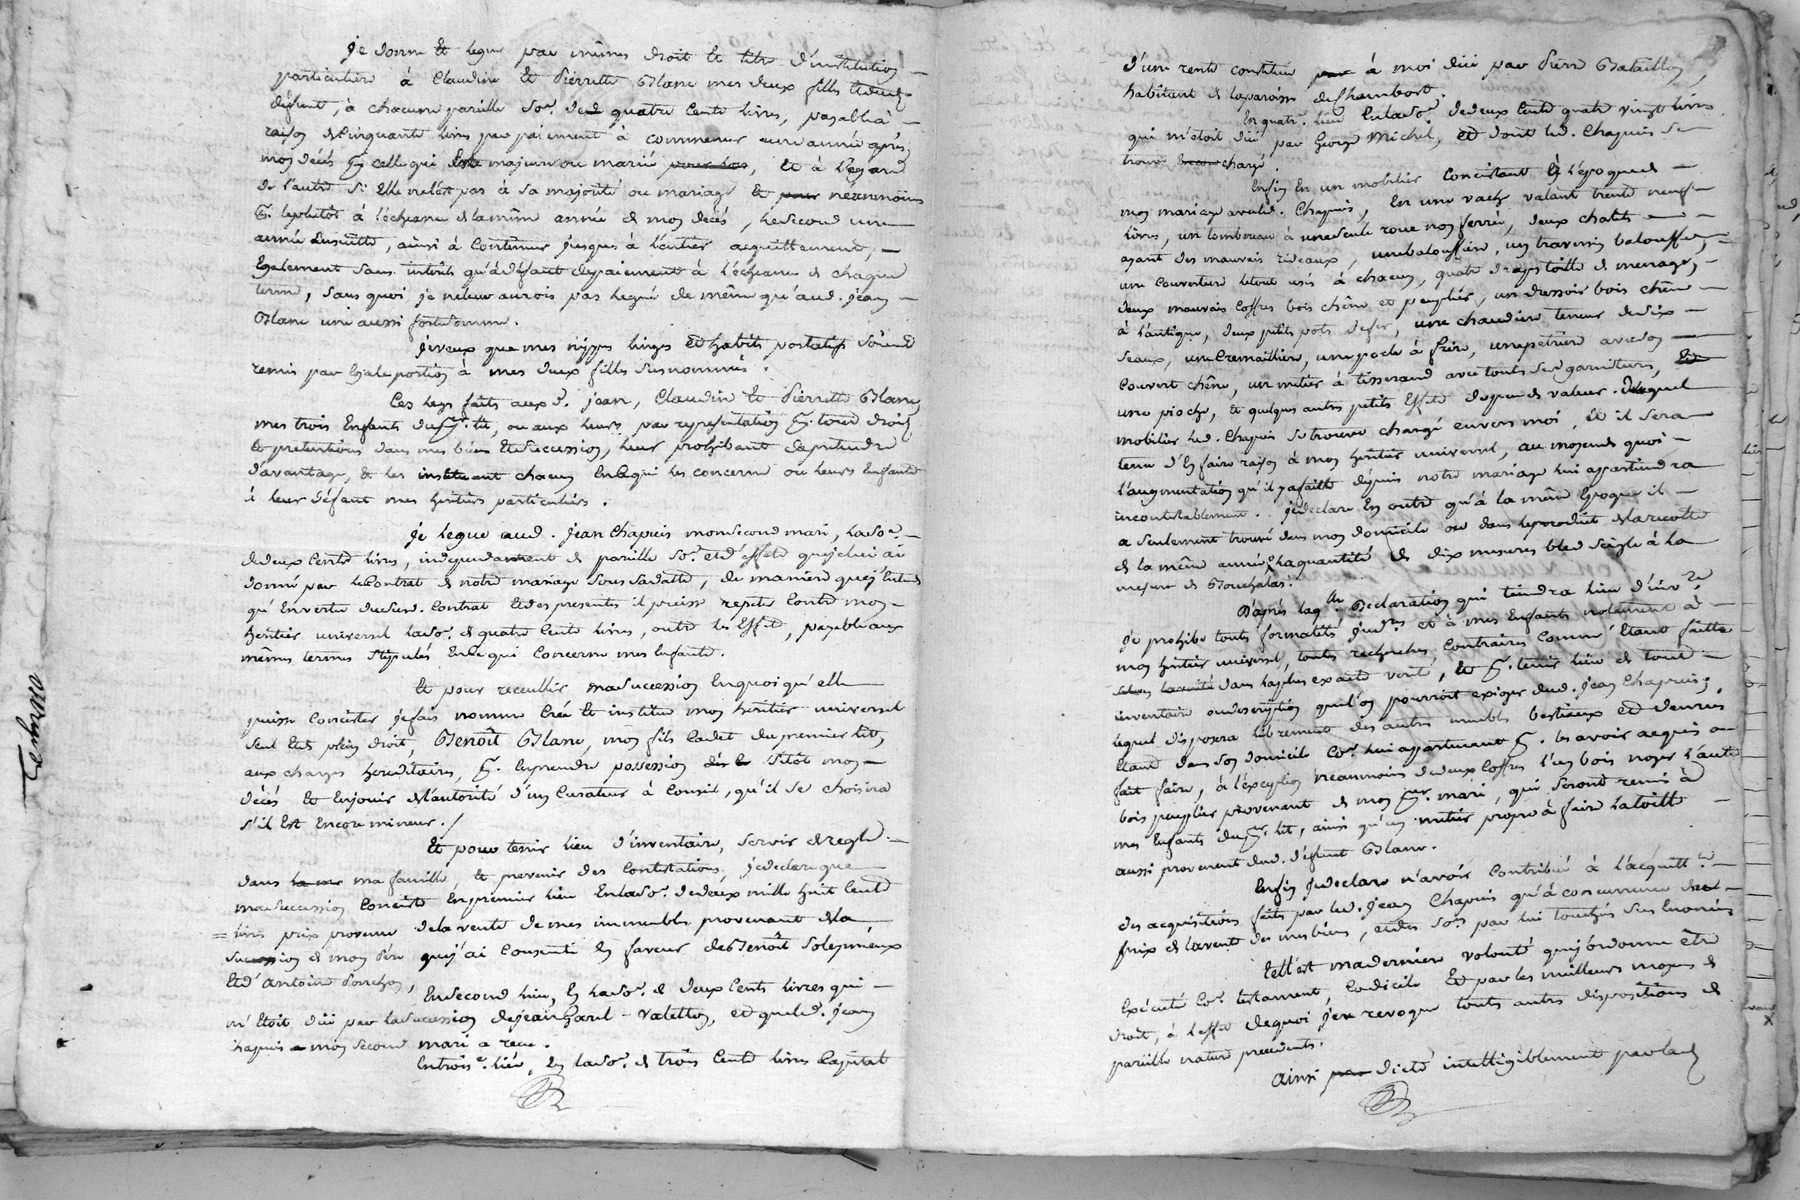 je donne et legue par mêmes droit et titre d'institution
particuliere à Claudine et Pierrette Blanc mes deux filles dud.
défunt, à chacune pareille so.e de quatre cents livres, payable à
raison de cinquante livres par paiement à commencer une année après
mon décès p.r celle qui sera majeure ou mariée, et à l'égard
de l'autre si elle n'est pas à sa majorité ou mariage et néanmoins
à l'écheance de la même année de mon décès, le second une
année ensuitte, ainsi à continuer jusques à l'entier acquittement,
egalement sans interêts qu'à défaut de paiement à l'écheance de chaque
terme, sans quoi je ne leur aurois pas legué de même qu'aud. jean
Blanc une aussi forte somme.
je veux que mes nippes linges et habits portatifs soient
remis par egale portion à mes deux filles susnommées.
Ces legs faits auxd. jean, Claudine et Pierrette Blanc
mes trois enfants du p.er lit, ou aux leurs par representation p.r tous droits
et pretentions dans mes biens et succession, leur prohibant de pretendre
d'avantage, et les instituant chacun en ce qui les concerne ou leurs enfants
à leur défaut mes heritiers particuliers.
je legue aud. jean Chapuis mon second mari, la so.e
de deux cents livres, independament de pareille so.e et d'effets que je lui ai
donné par le contrat de notre mariage sous sa datte, de maniere que j'entends
qu'en vertu dud. contrat et des presentes il puisse repeter contre mon
heritier universel la so.e de quatre cents livres, outre les effets, payable aux
mêmes termes stipulés en ce qui concerne mes enfants.
Et pour recueillir ma succession en quoi qu'elle
puisse concister, je fais nomme créé et institue mon heritier universel
seul et de plein droit, Benoît Blanc, mon fils cadet du premier lit,
aux charges hereditaires, p.r en prendre possession sitôt mon
décès et en jouir de l'autorité d'un curateur à conseil, qu'il se choisira
s'il est encore mineur./
Et pour tenir lieu d'inventaire, servir de regle
dans ma famille et prevenir des contestations, je declare que
ma succession concicte en premier lieu en la so.e de deux mille huit cents
livres prix provenu de la vente de mes immeubles provenant de la
succession de mon père que j'ai consenti en faveur de Benoît Solepmieux
et d'antoine Ponchon,
en second lieu, en la so.e de deux cents livres qui
m'etoit düe par la succession de jean Garel-Valetton, et que led. jean
Chapuis mon second mari a recu.
Entrois.e lieu, en la so.e de trois cents livres capital
Testament
d'une rente constituée à moi düe par Pierre Bataillon,
habitant de la paroisse de Chambost.
En quatr.e lieu en la so.e de deux cents quatre vingt livres
qui m'étoit düe par George Michel, et dont led. Chapuis se
trouve chargé.
Enfin en un mobilier concistant à l'époque de
mon mariage avec led. Chapuis, en une vache valant trente neuf
livres, un tombereau à une seule roue non ferrée, deux chalits
ayant des mauvais rideaux, une balouffiere, un traversin balouffe,
une couverture le tout usés à chacun, quatre draps toille de menage,
deux mauvais coffres bois chêne et peuplier, un dressoir bois chêne
à l'antique, deux petits pots de fer, une chaudiere teneur de dix
seaux, une cremaillere, une poele à frire, une petriere avec son
couvert chêne, un métier à tisserand avec touts ses garnitures,
une pioche, et quelques autres petits effets de peu de valeur. Duquel
mobilier led. Chapuis se trouve chargé envers moi, et il sera
tenu d'en faire raison à mon heritier universel, au moyend quoi
l'augmentation qu'il y a faitte depuis notre mariage lui appartiendra
incontestablement. je declare en outre qu'à la même epoque il
a seulement trouvé dans mon domicile ou dans le produit de la recolte
de la même année la quantité de dix mesures bled seigle à la
mesure de Bouchalas.
D'après laq.lle declaration qui tiendra lieu d'inv.re
je prohibe touts formalités jud.res et à mes enfants notament à
mon heritier universel, toutes recherches contraires comme étant faitte
dans la plus exacte verité, et p.r tenir lieu de tout
inventaire ou description qu'ils pourroit exiger dud. jean Chapuis,
lequel disposera librement des autres meubles bestiaux et denrées
étant dans son domicile co.e lui appartenant p.r les avoir acquis ou
fait faire, à l'exception neanmoins de deux coffres l'un bois noyer l'autre
bois peuplier provenant de mon p.er mari, qui seront remis à
mes enfants du p.er lit, ainsi qu'un métier propre à faire la toille
aussi provenant dud. défunt Blanc.
Enfin je declare n'avoir contribué à l'acquitt.t
des acquisitions faits par led. jean Chapuis qu'à concurrence du
prix de la vente de mes biens, et des so.es par lui touchés sus enoncées
telle est ma derniere volonté que j'ordonne être
executé co.e testament, codicile et par les meilleurs moyens de
droit, à l'effet de quoi j'en revoque touts autres dispositions de
pareille nature precedents.
ainsi dicté intelligiblement par lad.